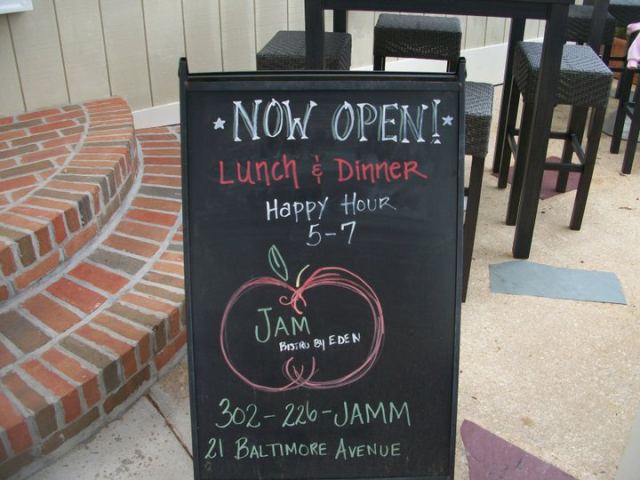 NOW OPEN!
Lunch & Dinner
Happy Hour
5-7
JAM
Bistro By EDEN
302-226-JAMM
21 Baltimore Avenue